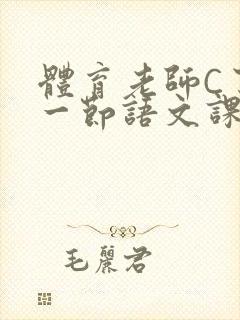 體育老師C
一節語文課
毛麗君